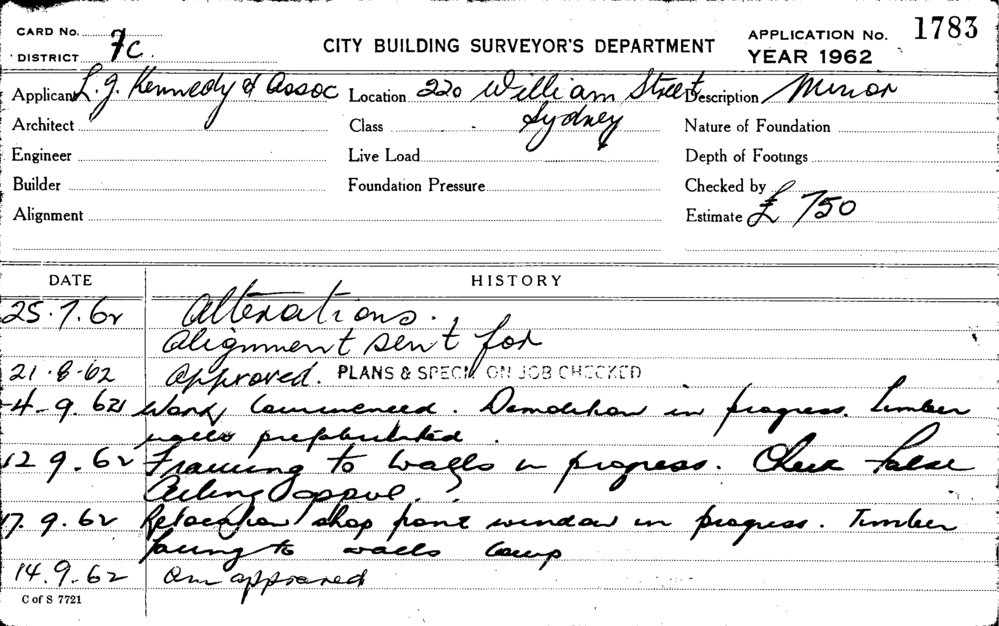 CARD No. 7c.
DISTRICT
CITY BUILDING SURVEYOR'S DEPARTMENT
APPLICATION No. 1783
YEAR 1962
Applicant L. J. Kennedy & Assoc Location 220 William Street Description Minor
Sydney
Architect Class Nature of Foundation
Engineer Live Load Depth of Footings
Builder Foundation Pressure Checked by
Alignment Estimate £ 750
DATE HISTORY
25.7.62 Alterations.
Alignment sent for
21-8-62 Approved. PLANS & SPECN ON JOB CHECKED
4-9.62 Work Commenced. Demolition in progress. Timber
walls prefabricated.
12 9.62 Framing to walls in progress. Check false
Ceiling
17.9.62 Relocation shop front window in progress. Timber
facing to walls
14.9.62 approved
C of S 7721